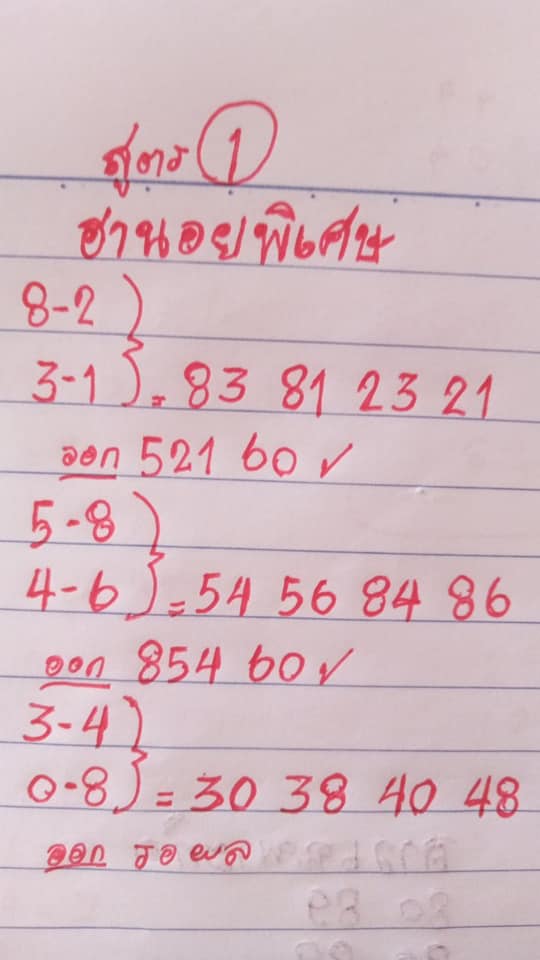 สูตร 1
ฮานอยพิเศษ
8-2
3-1 = 83 81 23 21
ออก 521 60 ✓
5-8
4-6 = 54 56 84 86
ออก 854 60 ✓
3-4
0-8 = 30 38 40 48
ออก รอผล